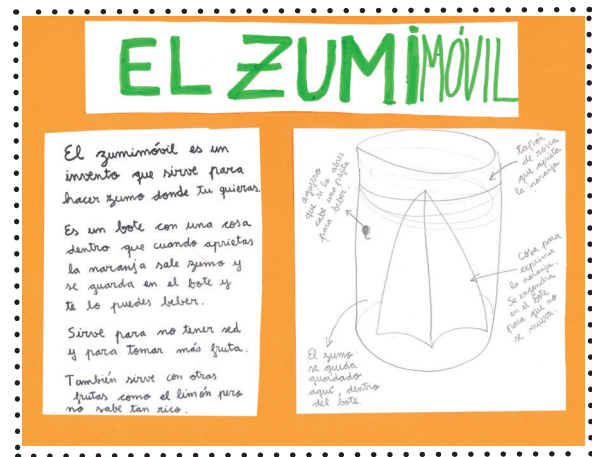 EL ZUMIMÓVIL
El zumimóvil es un
invento que sirve para
hacer zumo donde tu quieras.
Es un bote con una cosa
dentro que cuando aprietas
la naranja sale zumo y
se guarda en el bote y
te lo puedes beber.
Sirve para no tener sed
y para tomar más fruta.
También sirve con otras
frutas como el limón pero
no sabe tan rico.
agujero
que si lo abres
cabe una pajita
para beber
tapón
de rosca
que aprieta
la naranja
cosa para
exprimir
la naranja.
Se engancha
en el bote
para que no
se mueva.
El zumo
se queda
guardado
aquí, dentro
del bote.